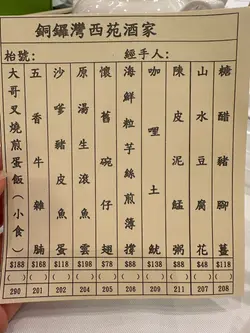 銅鑼灣西苑酒家
枱號： 經手人：
大哥叉燒煎蛋飯(小食)
五香牛雜腩
沙嗲豬皮魚蛋
原湯生滾魚雲
懷舊碗仔翅
海鮮粒芋絲煎簿撐
咖哩土魷
陳皮泥鯭粥
山水豆腐花
糖醋豬腳薑
$188 $168 $118 $198 $78 $88 $138 $88 $48 $118
( ) ( ) ( ) ( ) ( ) ( ) ( ) ( ) ( ) ( )
290 201 202 204 205 206 209 211 207 208